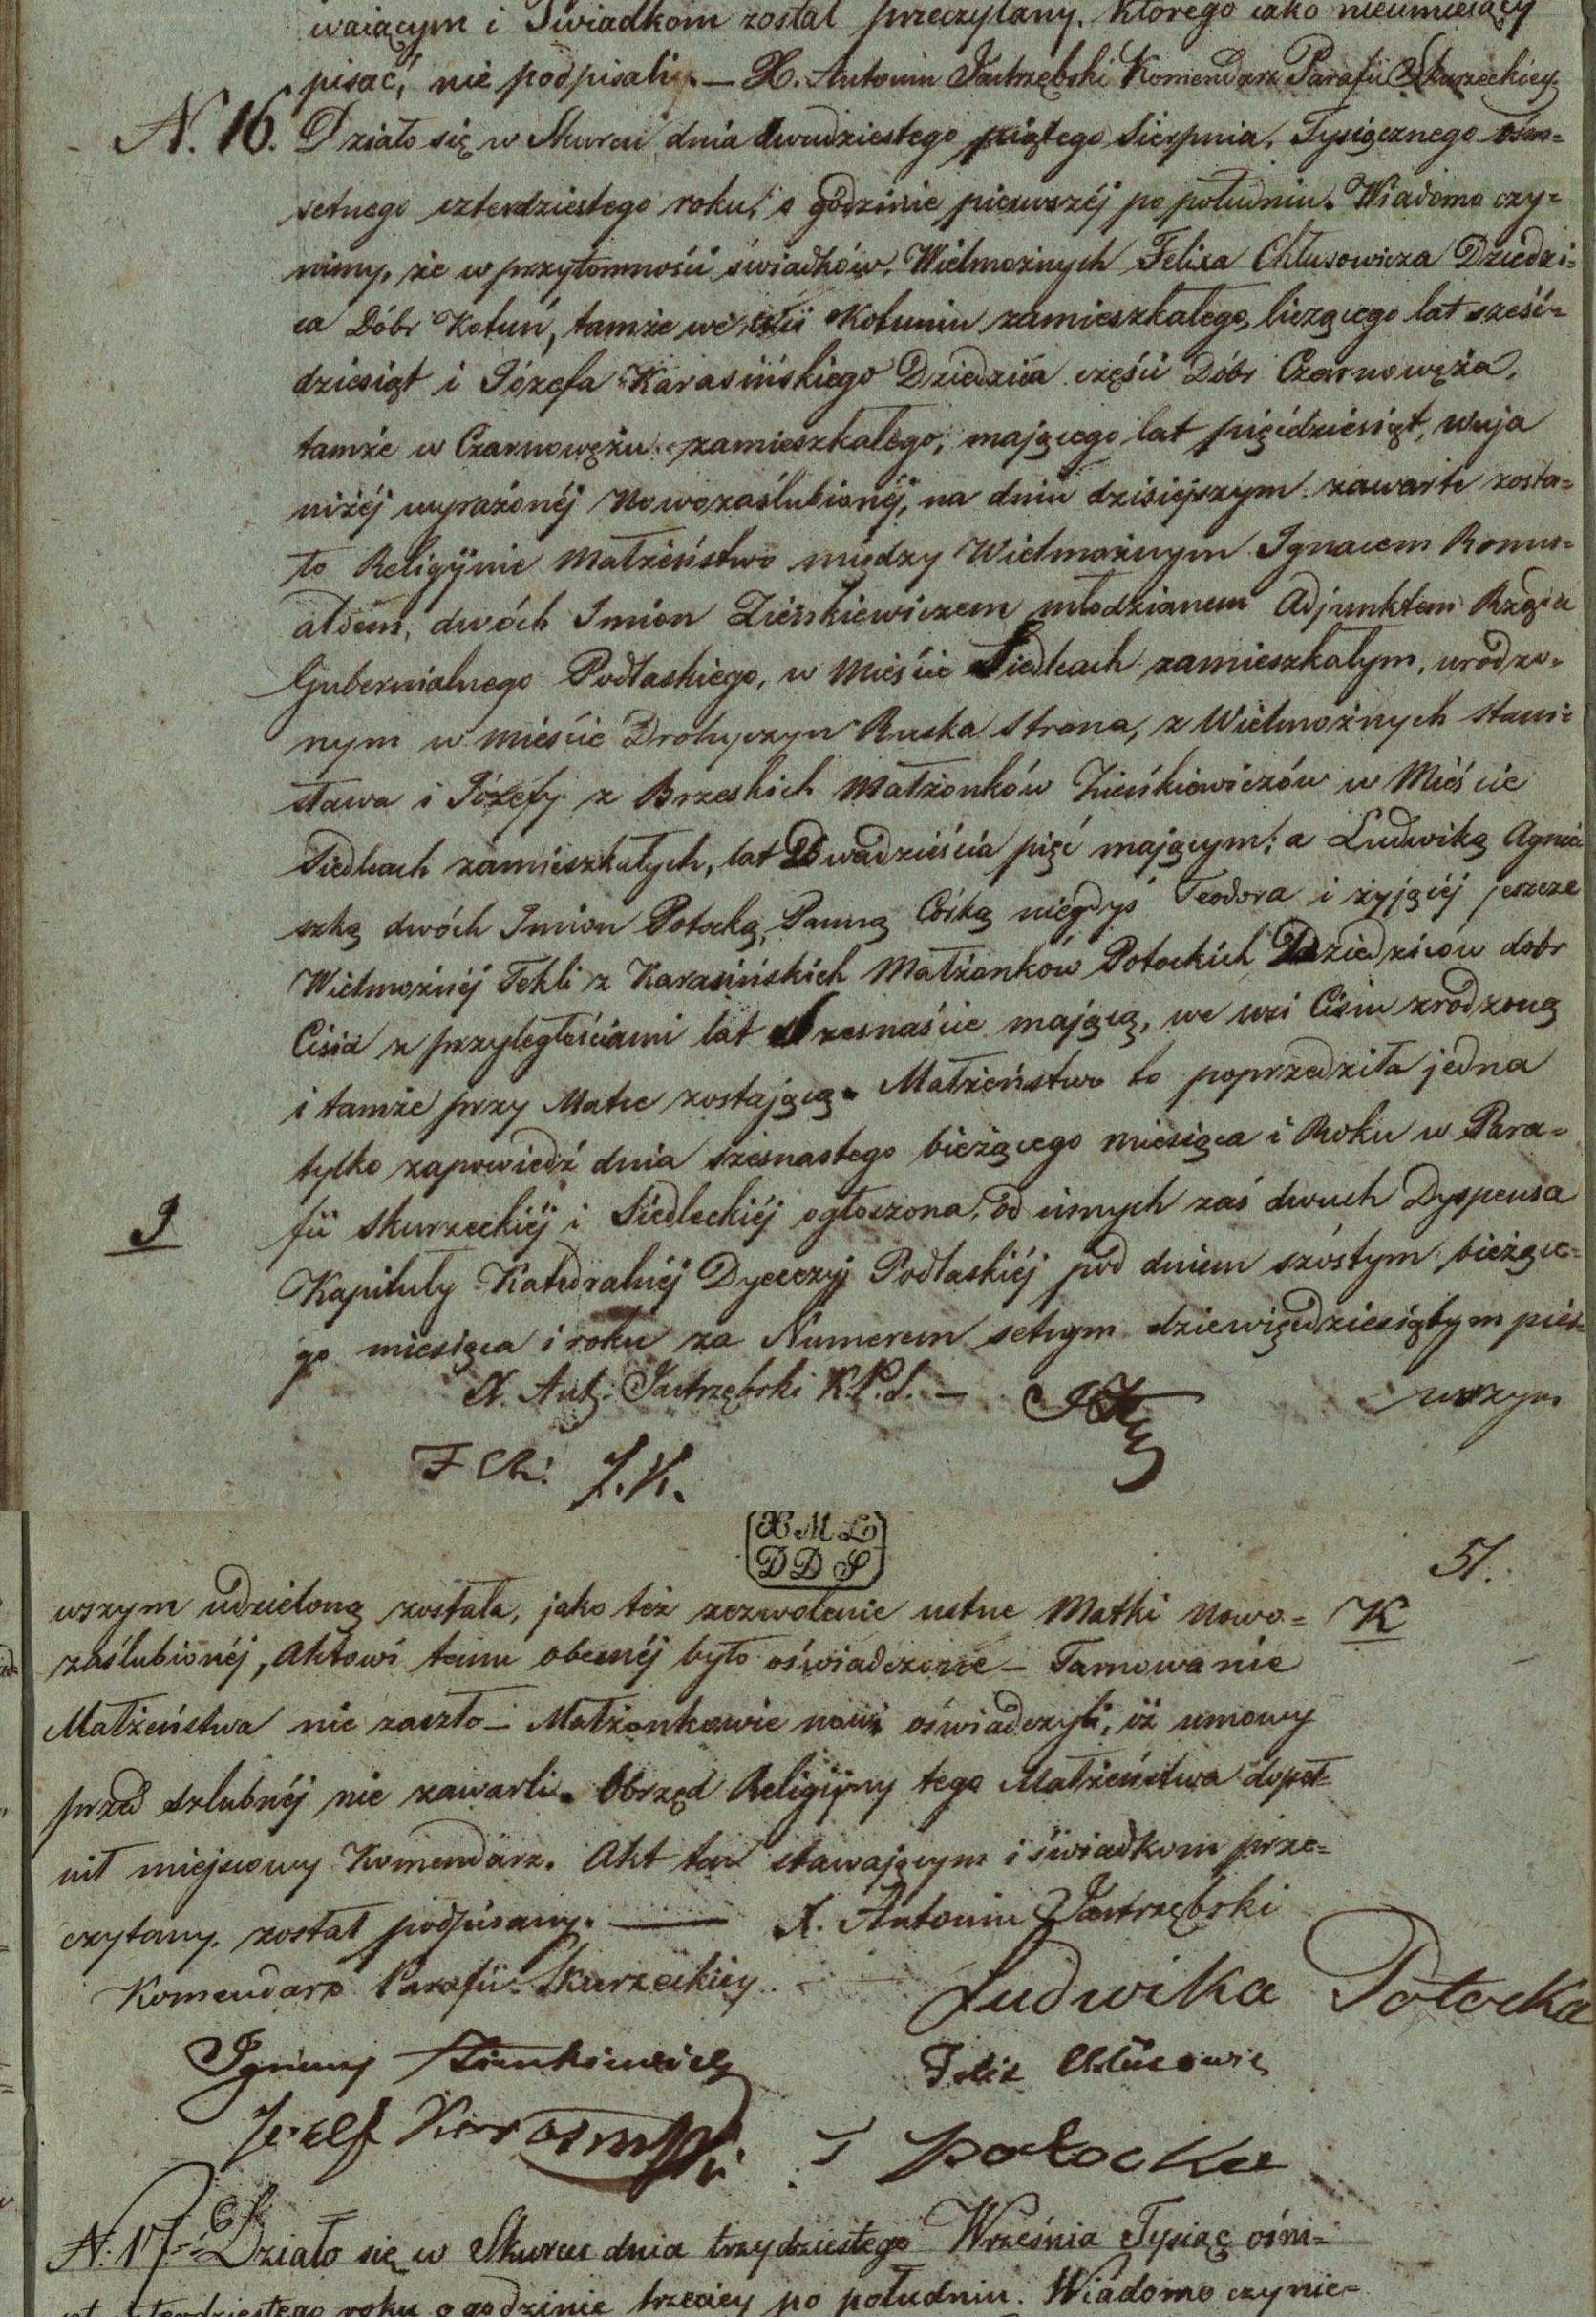 waiącym i Swiadkom został przeczytany. Ktorego iako nieumieiący
pisać, nie podpisali. — X. Antonin Jastrzębski Komendarz Parafii Skurzeckiey
N. 16. Działo się w Skurcu dnia dwudziestego piątego Sierpnia, Tysiącznego ośm-
setnego czterdziestego roku, o godzinie pierwszéj po południu. Wiadomo czy-
nimy, że w przytomności świadków, Wielmożnych Felixa Chlusowicza Dziedzi-
ca Dóbr Kotuń, tamże we wsi Kotuniu zamieszkałego, liczącego lat sześć-
dziesiąt i Józefa Karasińskiego Dziedzica części Dóbr Czarnowęża,
tamże w Czarnowężu zamieszkałego, mającego lat pięćdziesiąt, wuja
niżéj wyrażonéj Nowozaślubionéj, na dniu dzisiejszym zawarte zosta-
ło Religijnie Małżeństwo między Wielmożnym Ignacem Romu-
aldem, dwóch Imion Zieńkiewiczem młodzianem Adjunktem Rządu
Gubernialnego Podlaskiego, w Mieście Siedlcach zamieszkałym, urodzo-
nym w mieście Drohyczyn Ruska Strona, z Wielmożnych Stani-
sława i Józefy z Brzeskich Małżonków Zieńkiewiczów w Mieście
Siedlcach zamieszkałych, lat Dwadzieścia pięć mającym; a Ludwiką Agnie
szką dwóch Imion Potocką, Panną Córką niegdyś Teodora i żyjącéj jeszcze
Wielmożnéj Tekli z Karasińskich Małżonków Potockich Dziedziców dobr
Cisia z przyległościami lat Szesnaście mającą, we wsi Cisiu zrodzoną
i tamże przy Matce zostającą. Małżeństwo to poprzedziła jedna
tylko zapowiedź dnia szesnastego bieżącego miesiąca i Roku w Para-
9 fii Skurzeckiéj i Siedleckiéj ogłoszona, od innych zaś dwuch Dyspensa
Kapituły Katedralnéj Dyecezyj Podlaskiéj pod dniem szóstym bieżące-
go miesiąca i roku za Numerem setnym dziewięćdziesiątym pier-
X. Ant. Jastrzębski K.P.S. — wszym
F Ch. J.K.
X M L
D D S
51.
wszym udzieloną została, jako też zezwolenie ustne Matki Nowo- K
zaślubionéj, Aktowi temu obecnéj było oświadczone — Tamowanie
Małżeństwa nie zaszło — Małżonkowie nowi oświadczyli, iż umowy
przed szlubnéj nie zawarli. Obrzęd Religijny tego Małżeństwa dopeł-
nił miejscowy Komendarz. Akt ten stawającym i świadkom prze-
czytany, został podpisany. — X. Antonin Jastrzębski
Komendarz Parafii Skurzeckiey
Ludwika Potocka
Ignacy Zienkiewicz
Felix Chlusowic
Jozef Karasinski
T Potocka
N. 17. Działo się w Skurcu dnia trzydziestego Września Tysiąc ośm-
czterdziestego roku o godzinie trzeciey po południu. Wiadomo czynie-